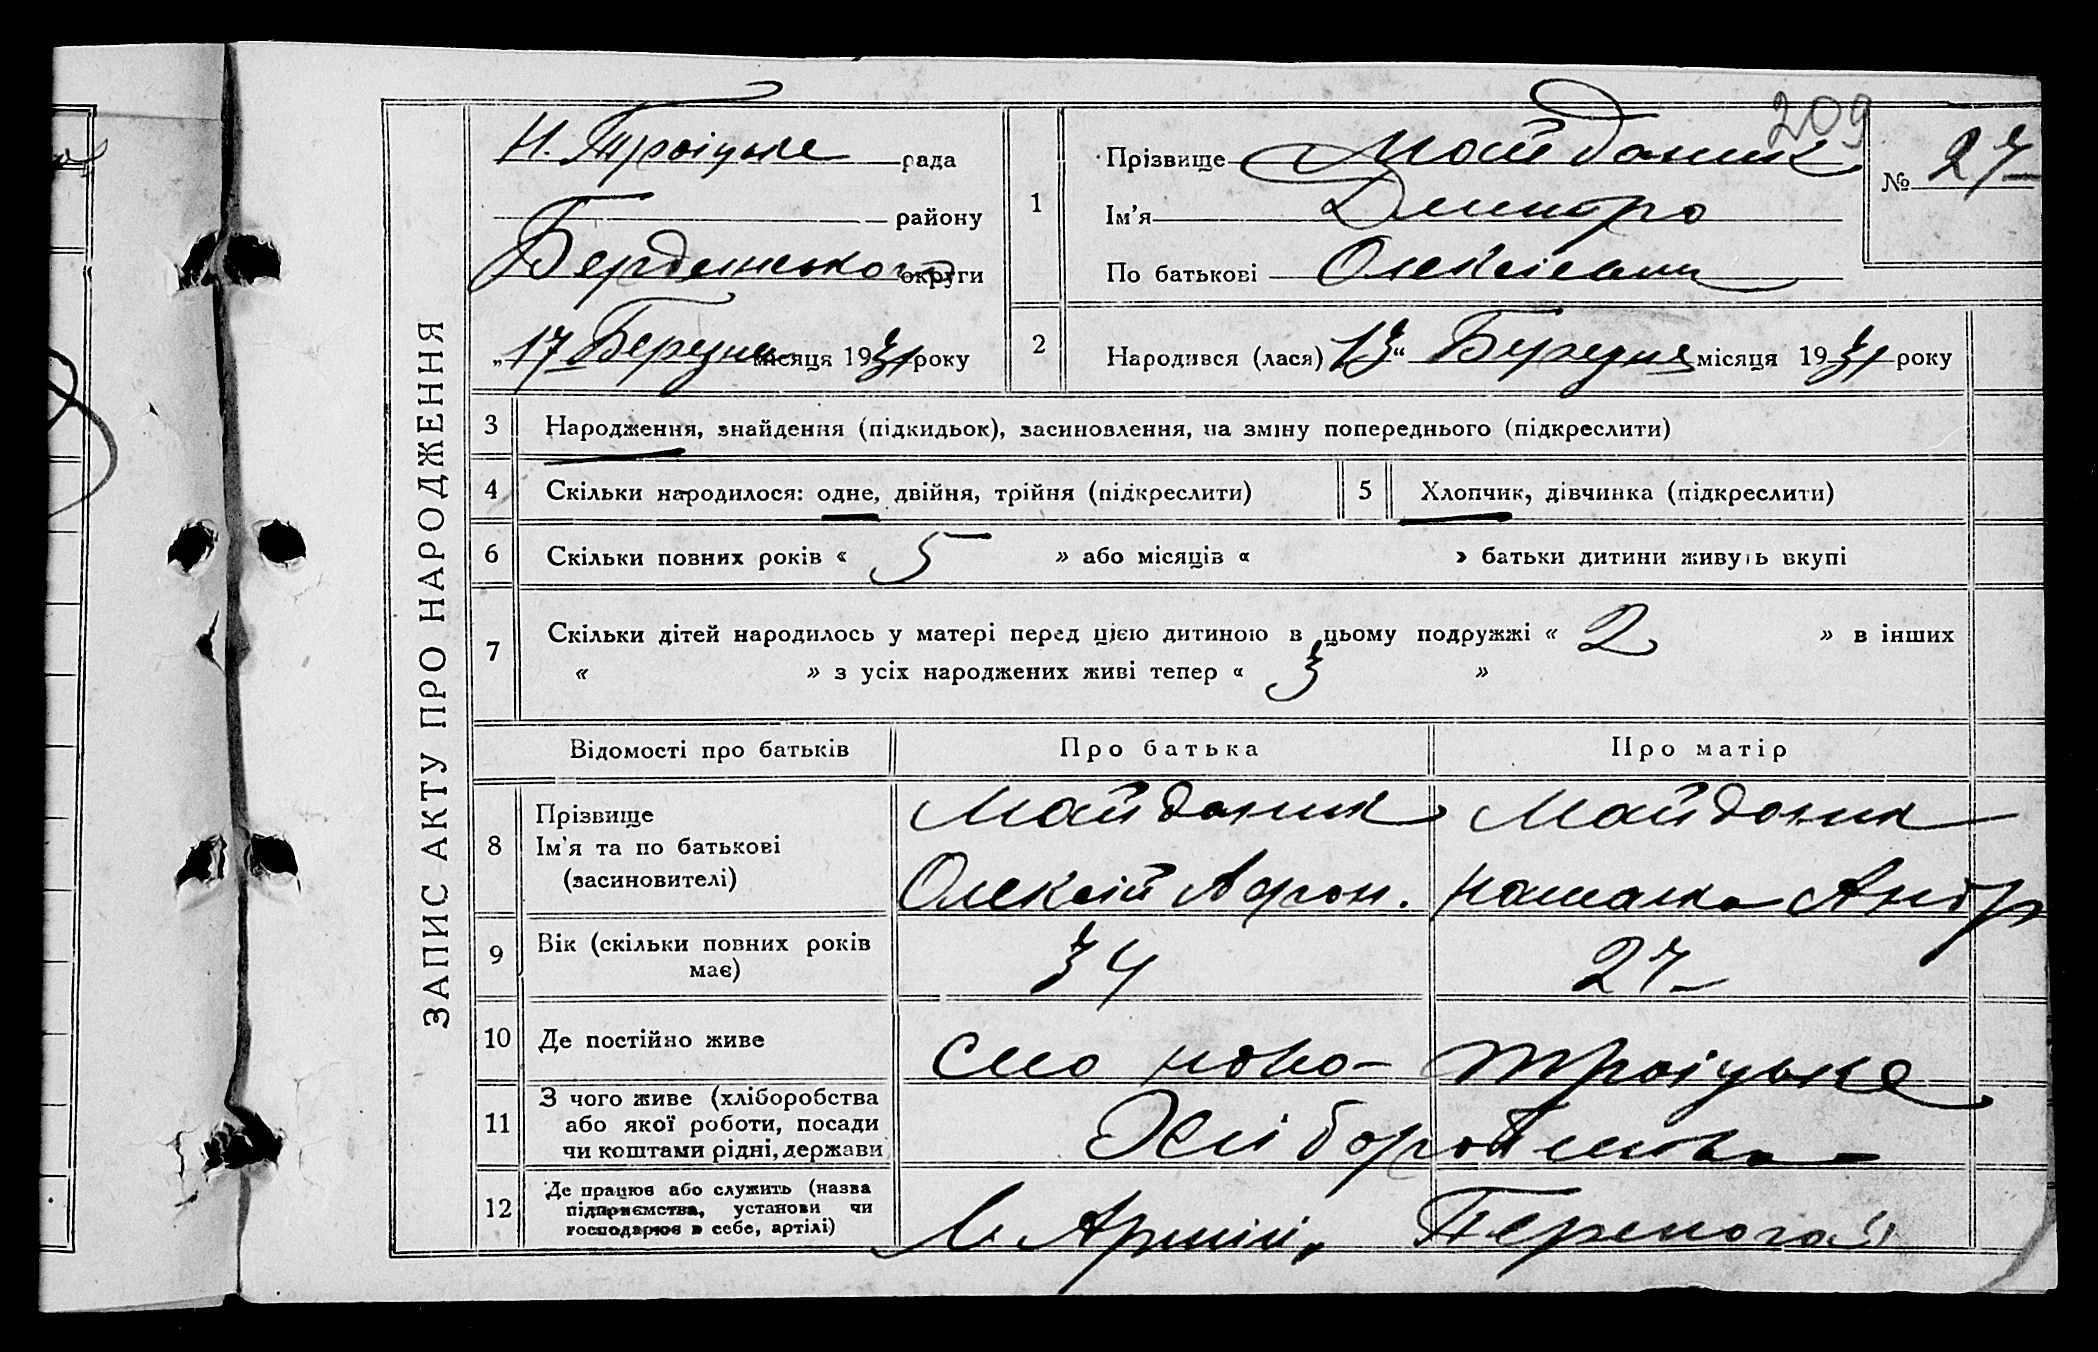 ЗАПИС АКТУ ПРО НАРОДЖЕННЯ
209
Н. Троіцьке рада
району
Бердянського округи
„17 Березня місяця 1931 року
1
Прізвище Майданик
Ім'я Дмитро
По батькові Олексієвич
№ 27
2
Народився (лася) 13“ Березня місяця 1931 року
3 Народження, знайдення (підкидьок), засиновлення, на зміну попереднього (підкреслити)
4 Скільки народилося: одне, двійня, трійня (підкреслити)
5 Хлопчик, дівчинка (підкреслити)
6 Скільки повних років « 5 » або місяців « » батьки дитини живуть вкупі
7 Скільки дітей народилось у матері перед цією дитиною в цьому подружжі « 2 » в інших
« » з усіх народжених живі тепер « 3 »
Відомості про батьків Про батька Про матір
8 Прізвище
Ім'я та по батькові
(засиновителі)
Майданик Майданик
Олексій Афон. Наталка Андр
9 Вік (скільки повних років
має)
34 27
10 Де постійно живе
село ново- троіцьке
11 З чого живе (хліборобства
або якої роботи, посади
чи коштами рідні, держави
Хліборобства
12 Де працює або служить (назва
підприємства, установи чи
господарює в себе, артілі)
в Артіli, Перемога"